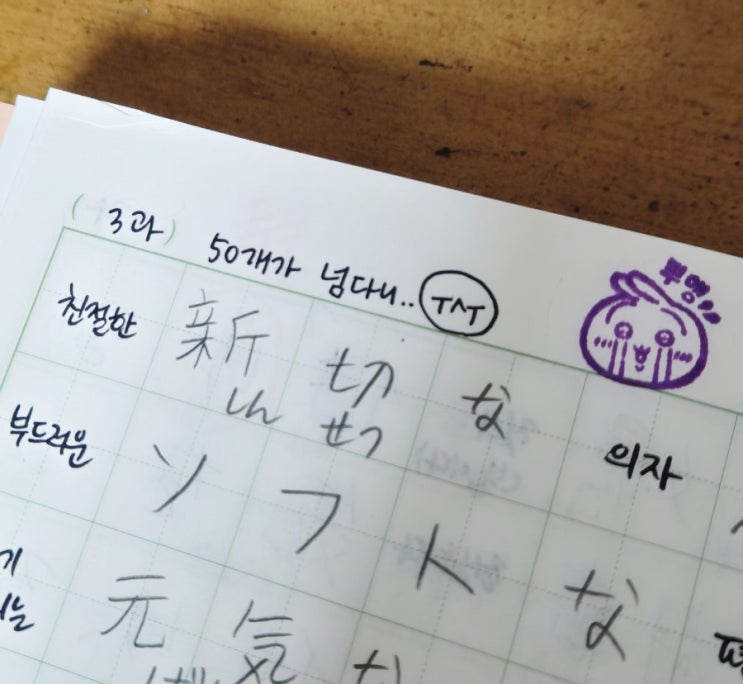 (3과) 50개가 넘다니.. T^T
뿌앵
친절한 新切な 의자
しん せつ
부드러운 ソフトな
기 元気な
는 げ